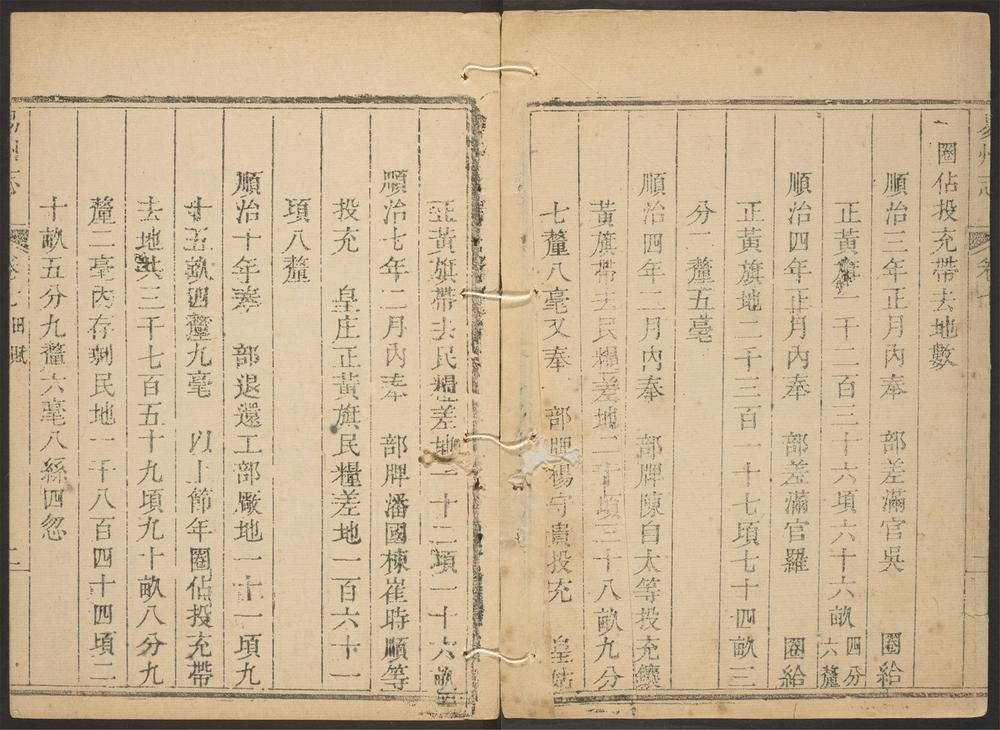 易州志 卷七
一圈佔投充帶去地數
順治三年正月內奉 部差滿官吳 圈給
正黃旗一千二百三十六頃六十六畝四分六釐
順治四年正月內奉 部差滿官羅 圈給
正黃旗地二千三百一十七頃七十四畝三
分二釐五毫
順治四年二月內奉 部牌陳自太等投充鑲
黃旗帶去民糧差地二十頃三十八畝九分
七釐八毫又奉 部牌楊守貴投充 皇姑
正黃旗帶去民糧差地二十二頃一十六畝
順治七年二月內奉 部牌潘國棟崔時順等
投充 皇庄正黃旗民糧差地一百六十一
頃八釐
順治十年奉 部退還工部廠地一十一頃九
十五畝四釐九毫 以上節年圈佔投充帶
去地共三千七百五十九頃九十畝八分九
釐二毫內存剩民地一千八百四十四頃二
十畝五分九釐六毫八絲四忽
易州志 卷七 田賦 二